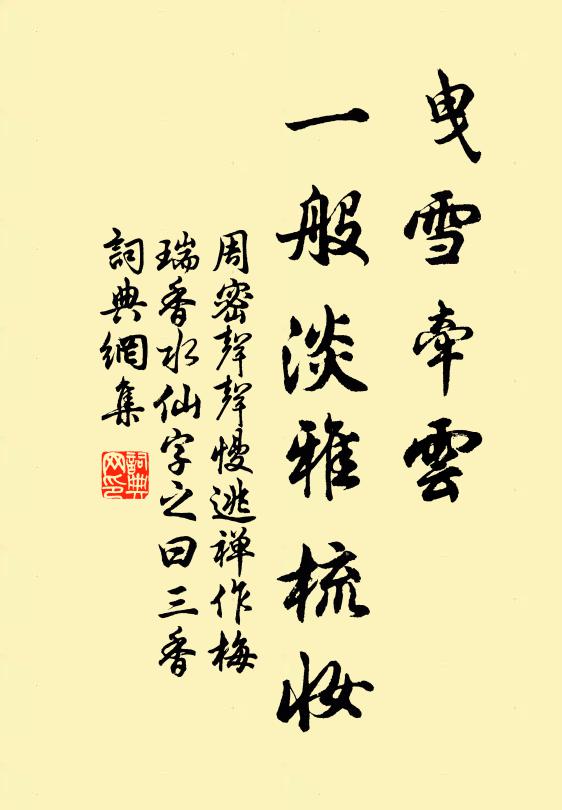 曳雪牽雲
一般淡雅梳妝
周密聲聲慢逃禅作梅
瑞香水仙字之曰三香
詞典網集
詞典
网印